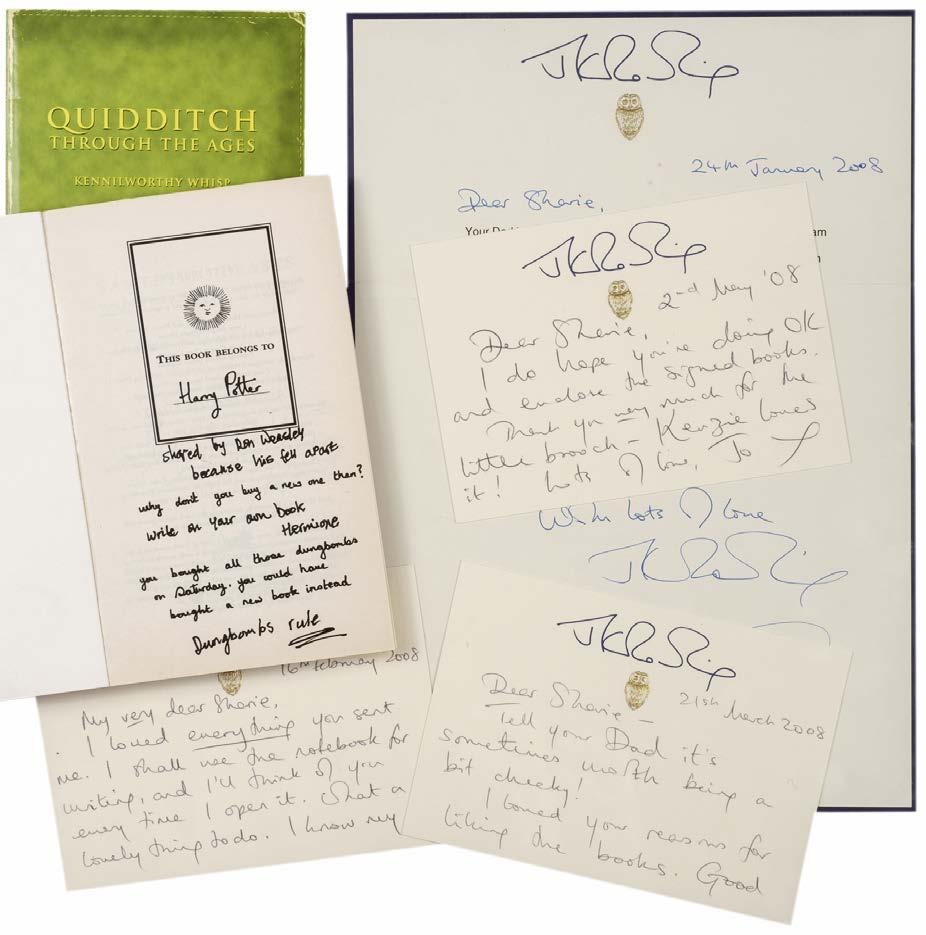 QUIDDITCH
THROUGH THE AGES
KENNILWORTHY WHISP
THIS BOOK BELONGS TO
Harry Potter
shared by Ron Weasley
because his fell apart
why don't you buy a new one then?
write on your own book
Hermione
you bought all those dungbombs
on Saturday. you could have
bought a new book instead
Dungbombs rule
JK Rowling
24th January 2008
Dear Sharie,
Your
JK Rowling
2nd May '08
Dear Sharie,
I do hope you're doing OK
and enclose the signed books.
Thank you very much for the
little brooch – Kenzie loves
it! Lots of love, Jo x
With lots of love
JK Rowling
16th February 2008
My very dear Sharie,
I loved everything you sent
me. I shall use the notebook for
writing, and I'll think of you
every time I open it. What a
lovely thing to do. I know my
JK Rowling
21st March 2008
Dear Sharie –
Tell your Dad it's
sometimes worth being a
bit cheeky!
I loved your reasons for
liking the books. Good